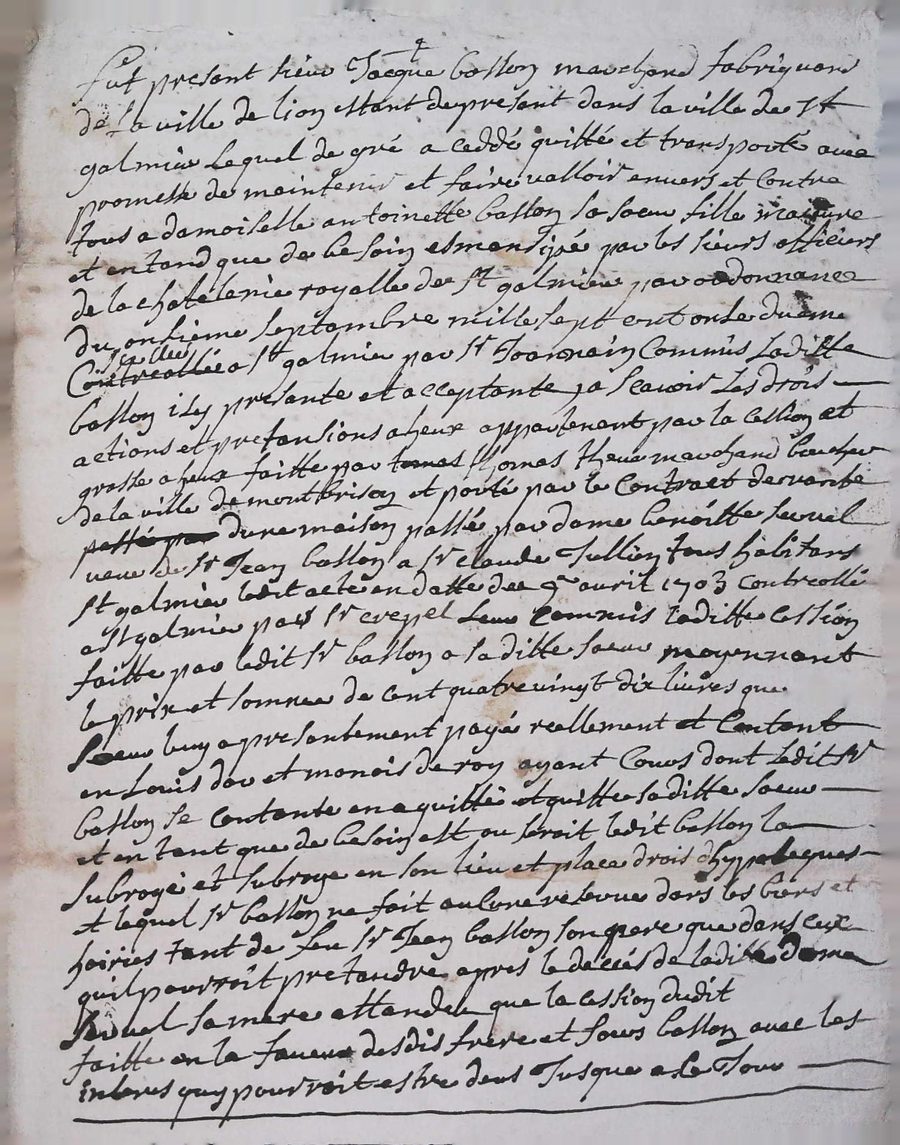 fut presant sieur Jacque ballon marchand fabriquand
de la ville de lion estant de present dans la ville de st
galmier lequel de gré a ceddé quitté et transporté avec
promesse de maintenir et faire valloir envers et contre
tous a damoiselle antoinette ballon sa soeur fille majeure
et en tand que de besoin esmansipée par les sieurs officiers
de la chatelenie royalle de st galmier par ordonnance
du onsieme septembre mille sept cent onse dueme
scellee
Contreollée a st galmier par sr Joannain Commis Laditte
ballon icy presante et acceptante sa scavoir Les drois
actions et pretansions a heux appartenent par la cession et
grosse a heux faitte par tomas thomas theur marchand boucher
de la ville de montbrison et porté par le Contract de vante
passé par dune maison passé par dame benoitte Seruel
veuve de sr Jean ballon a sr claude Jullien tous habitans
st galmier ledit acte en datte du 9e avril 1703 controllé
a st galmier par sr crepel Leur commis laditte cession
faitte par ledit sr ballon a sa ditte soeur moyennant
le prix et somme de cent quatre vingt dix livres que
Soeur luy a presantement payé reellement et Contant
en Louis dor et monois de roy ayant Cours dont Ledit sr
ballon se contante en a quitté et quitte sa ditte soeur
et en tant que de besoin est ou seroit ledit ballon la
Subrogé et Subroge en son lieu et place drois dhyppoteques
et lequel sr ballon ne fait aulcune reserve dans les biens et
hoiries tant de feu sr Jean ballon son pere que dans ceux
quil pourroit pretandre apres le deccés de laditte dame
Seruel sa mere attandu que la cession dudit
faitte en la faveur desdis frere et sours ballon avec les
interes quy pourroit estre deus Jusque a Ce Jour